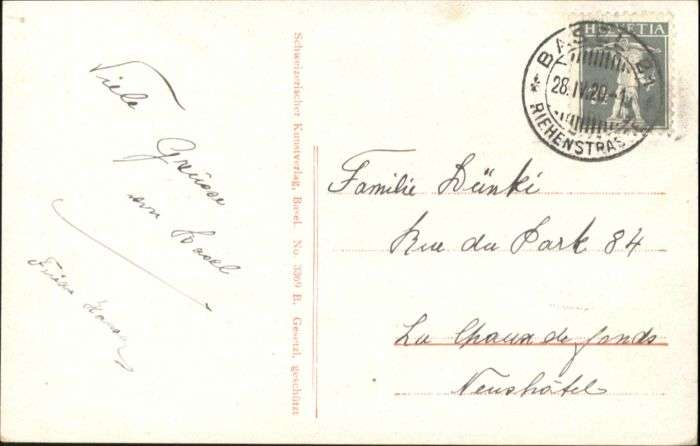 Viele
Grüsse
von Basel
Schweizerischer Kunstverlag, Basel. No. 3369 B. Gesetzl. geschützt
HELVETIA
BASEL 2
28.IV.20-1
RIEHENSTRAS
Familie Dünki
Rue du Park 84
La Chaux de fonds
Neushâtel